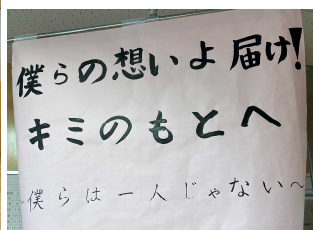 僕らの想いよ届け!
キミのもとへ
~僕らは一人じゃない~